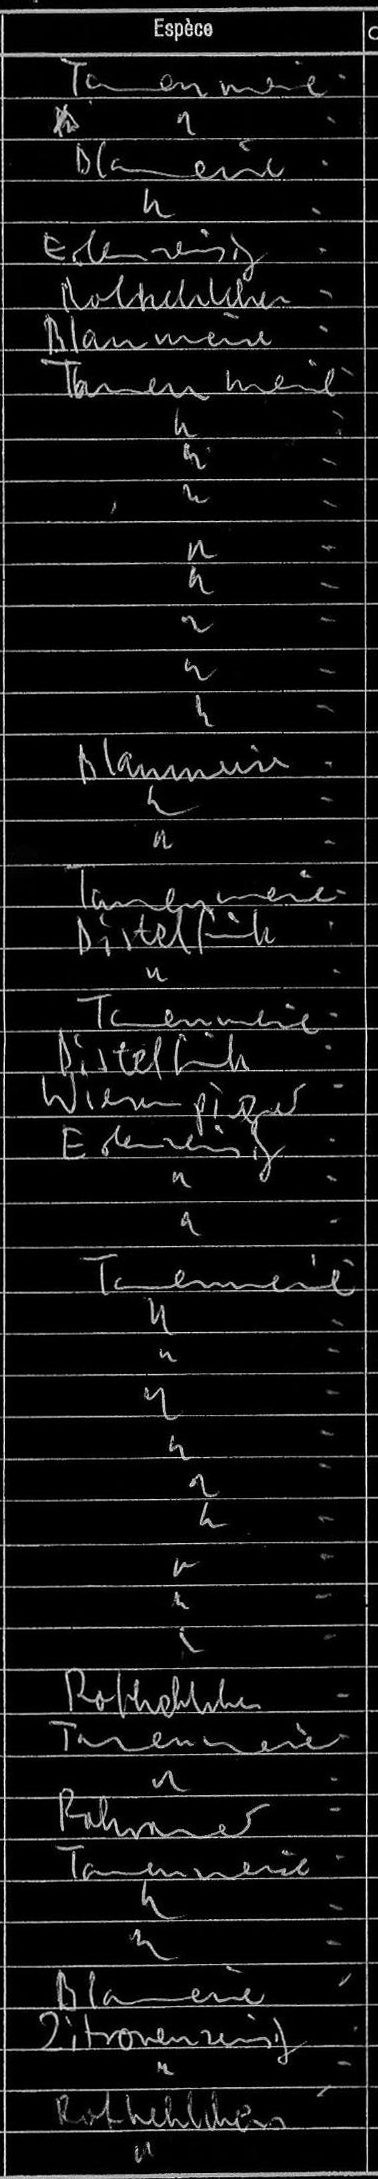 Espèce
Tanenmeise
"
Blameise
"
Erlenzeisig
Rotkehlchen
Blaumeise
Tanenmeise
"
"
"
"
"
"
"
"
Blaumeise
"
"
Tanenmeise
Distelfink
"
Tanenmeise
Distelfink
Wiesenpieper
Erlenzeisig
"
"
Tanenmeise
"
"
"
"
"
"
"
"
"
Rotkehlchen
Tanenmeise
"
Rohrammer
Tanenmeise
"
"
Blameise
Zitronenzeisig
"
Rotkehlchen
"